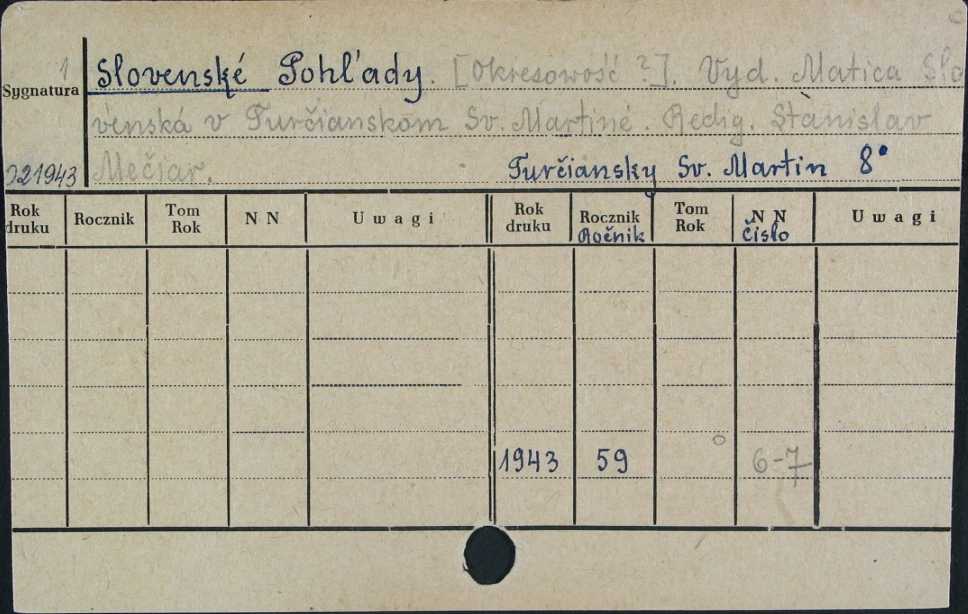 1 Slovenské Pohl'ady. [Okresowość ?]. Vyd. Matica Slo
Sygnatura
venská v Turčianskom Sv. Martine. Redig. Stanislav
021943 Mečiar.
Turčiansky Sv. Martin 8°
Rok druku Rocznik Tom Rok N N Uwagi Rok druku Rocznik Tom Rok N N Uwagi
Ročnik číslo
1943 59 6-7